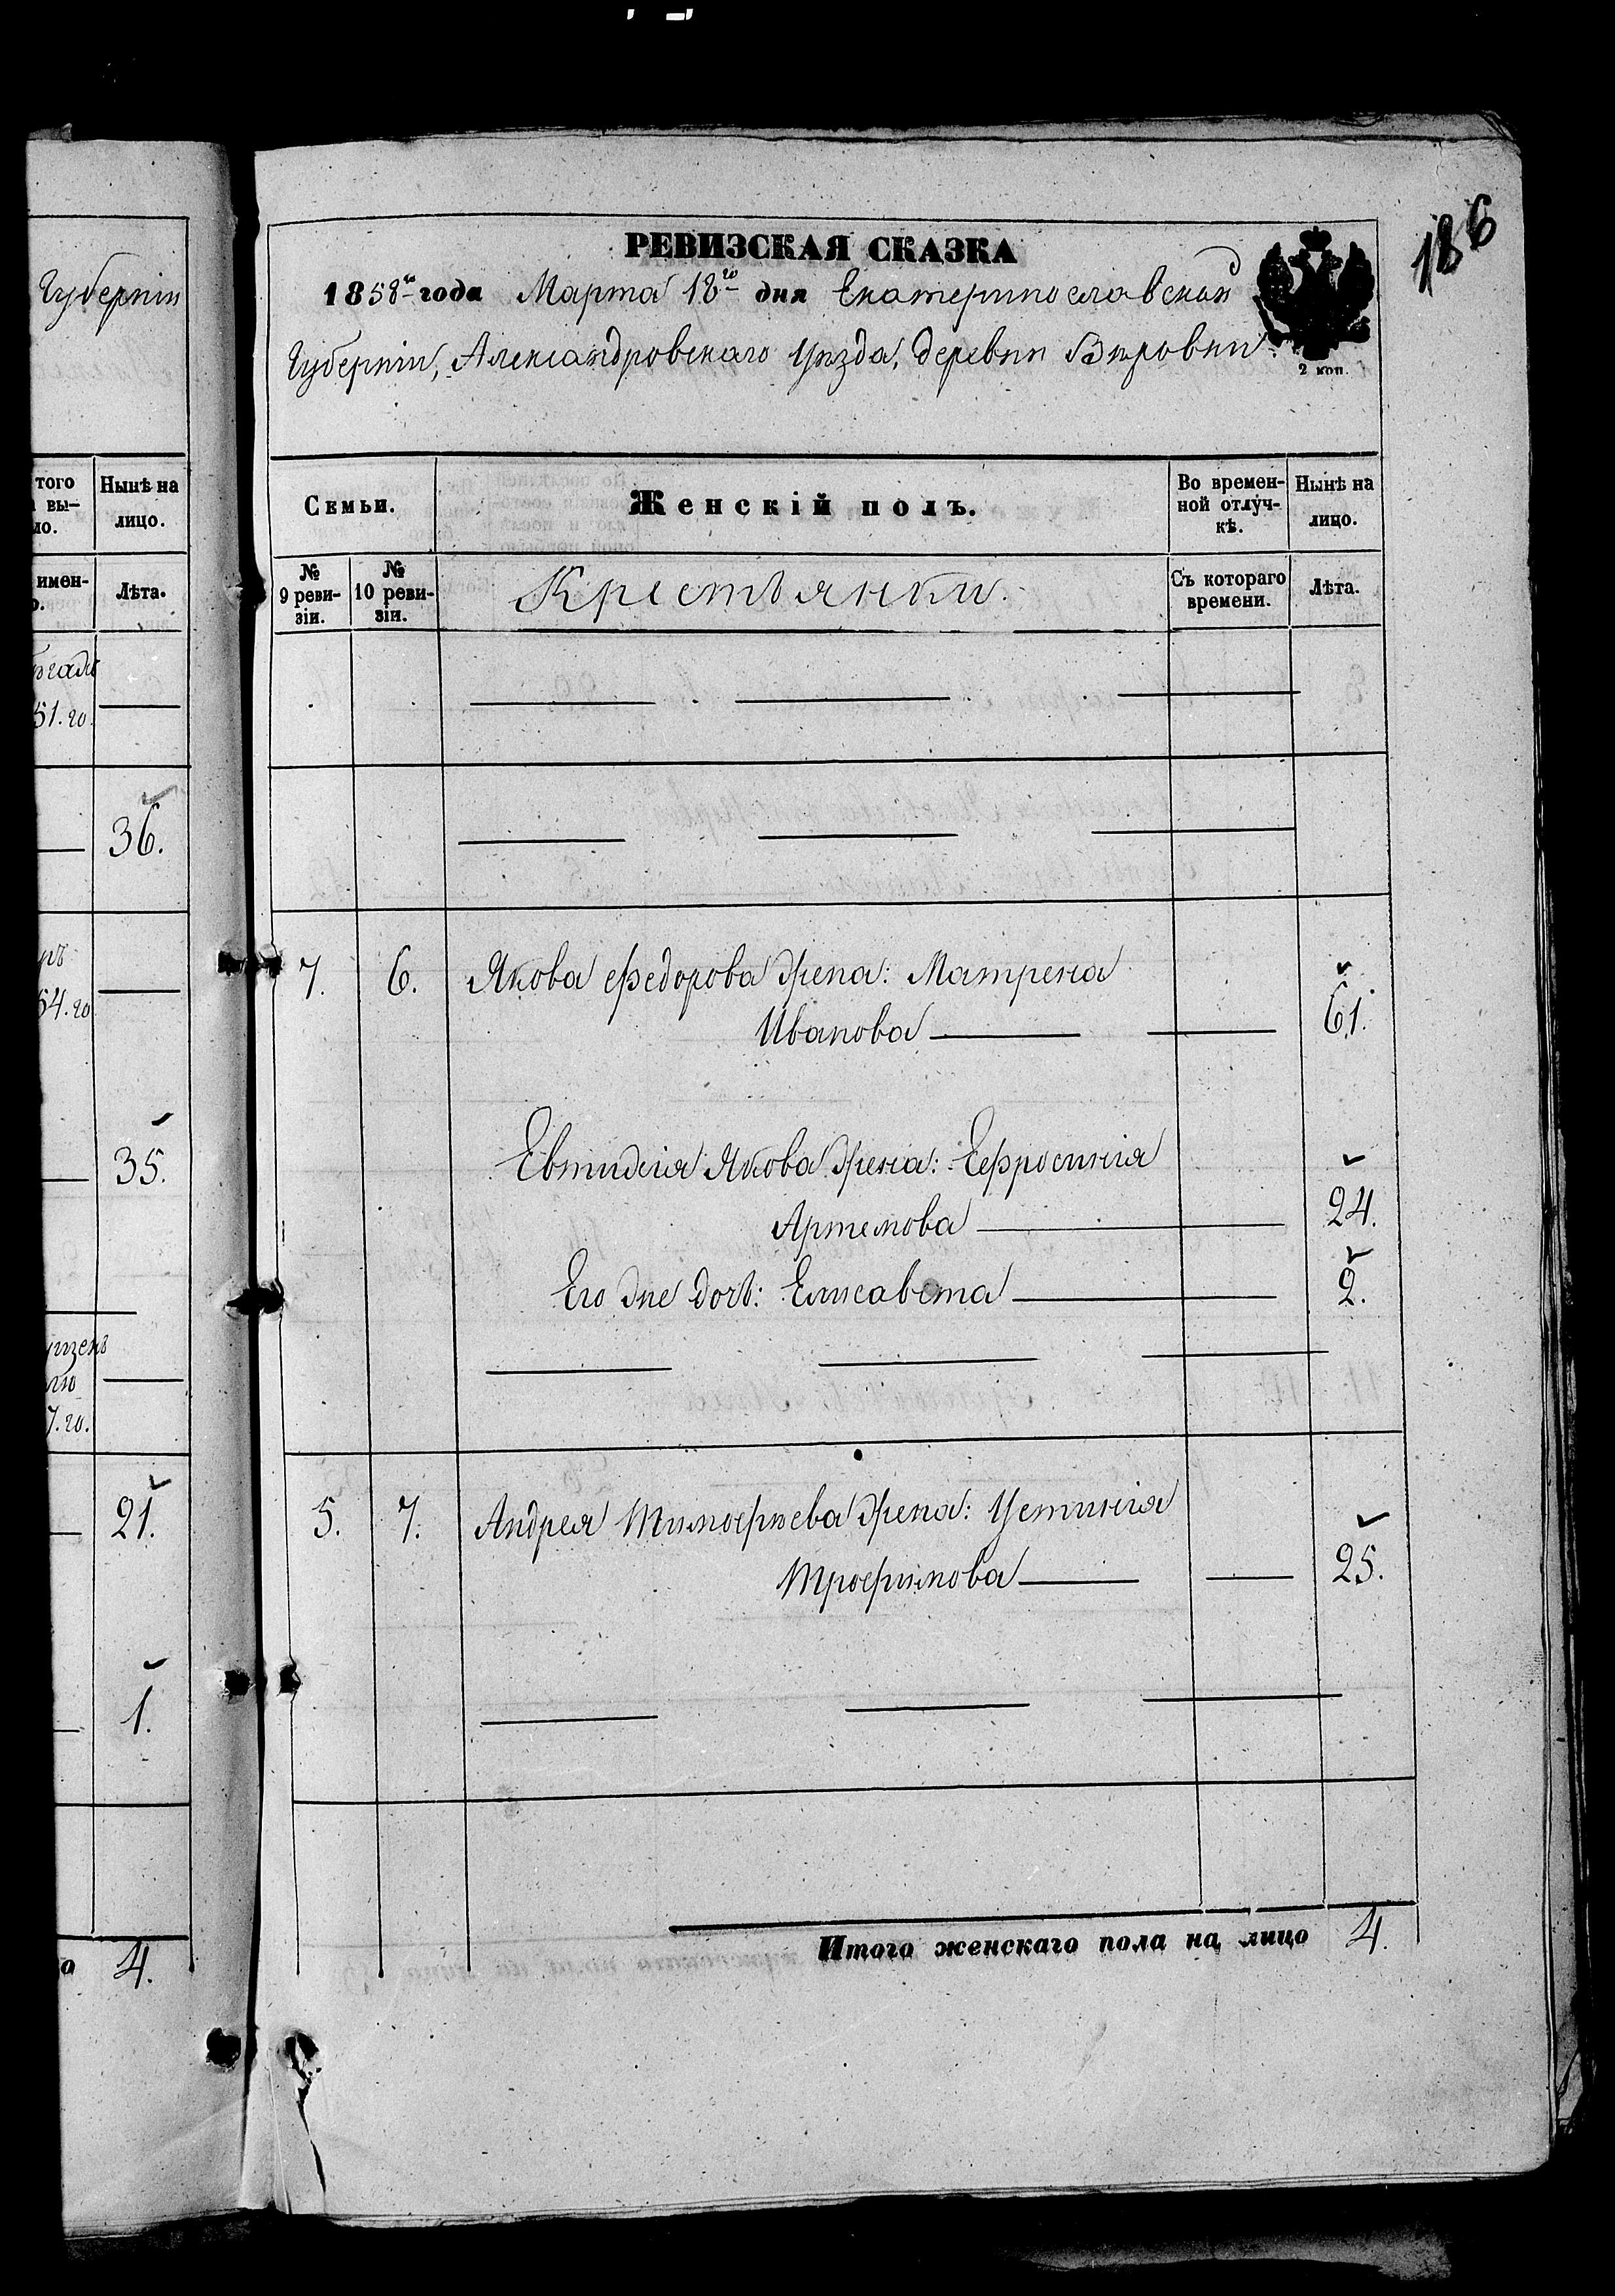 Губерніи
того
вы-
Нынѣ на
лицо.
имен-
Лѣта.
51.го.
36.
54.го
35.
7.го.
21.
1.
4.
186
РЕВИЗСКАЯ СКАЗКА
1858го года Марта 18го дня Екатеринославской
Губерніи, Александровскаго Уѣзда, деревни
2 коп.
Семьи.
Женскій полъ.
Во времен-
ной отлуч-
кѣ.
Нынѣ на
лицо.
№
9 реви-
зіи.
№
10 реви-
зіи.
Крестьянки.
Съ котораго
времени.
Лѣта.
7. 6. Якова Федорова Жена: Матрена
Иванова 61.
Евтидія Якова Жена: Ефросинія
Артемова 24.
Его Же дочь: Елисавета 2.
5. 7. Андрея Тимофѣева Жена: Устинія
Трофимова 25.
Итого женскаго пола на лицо 4.